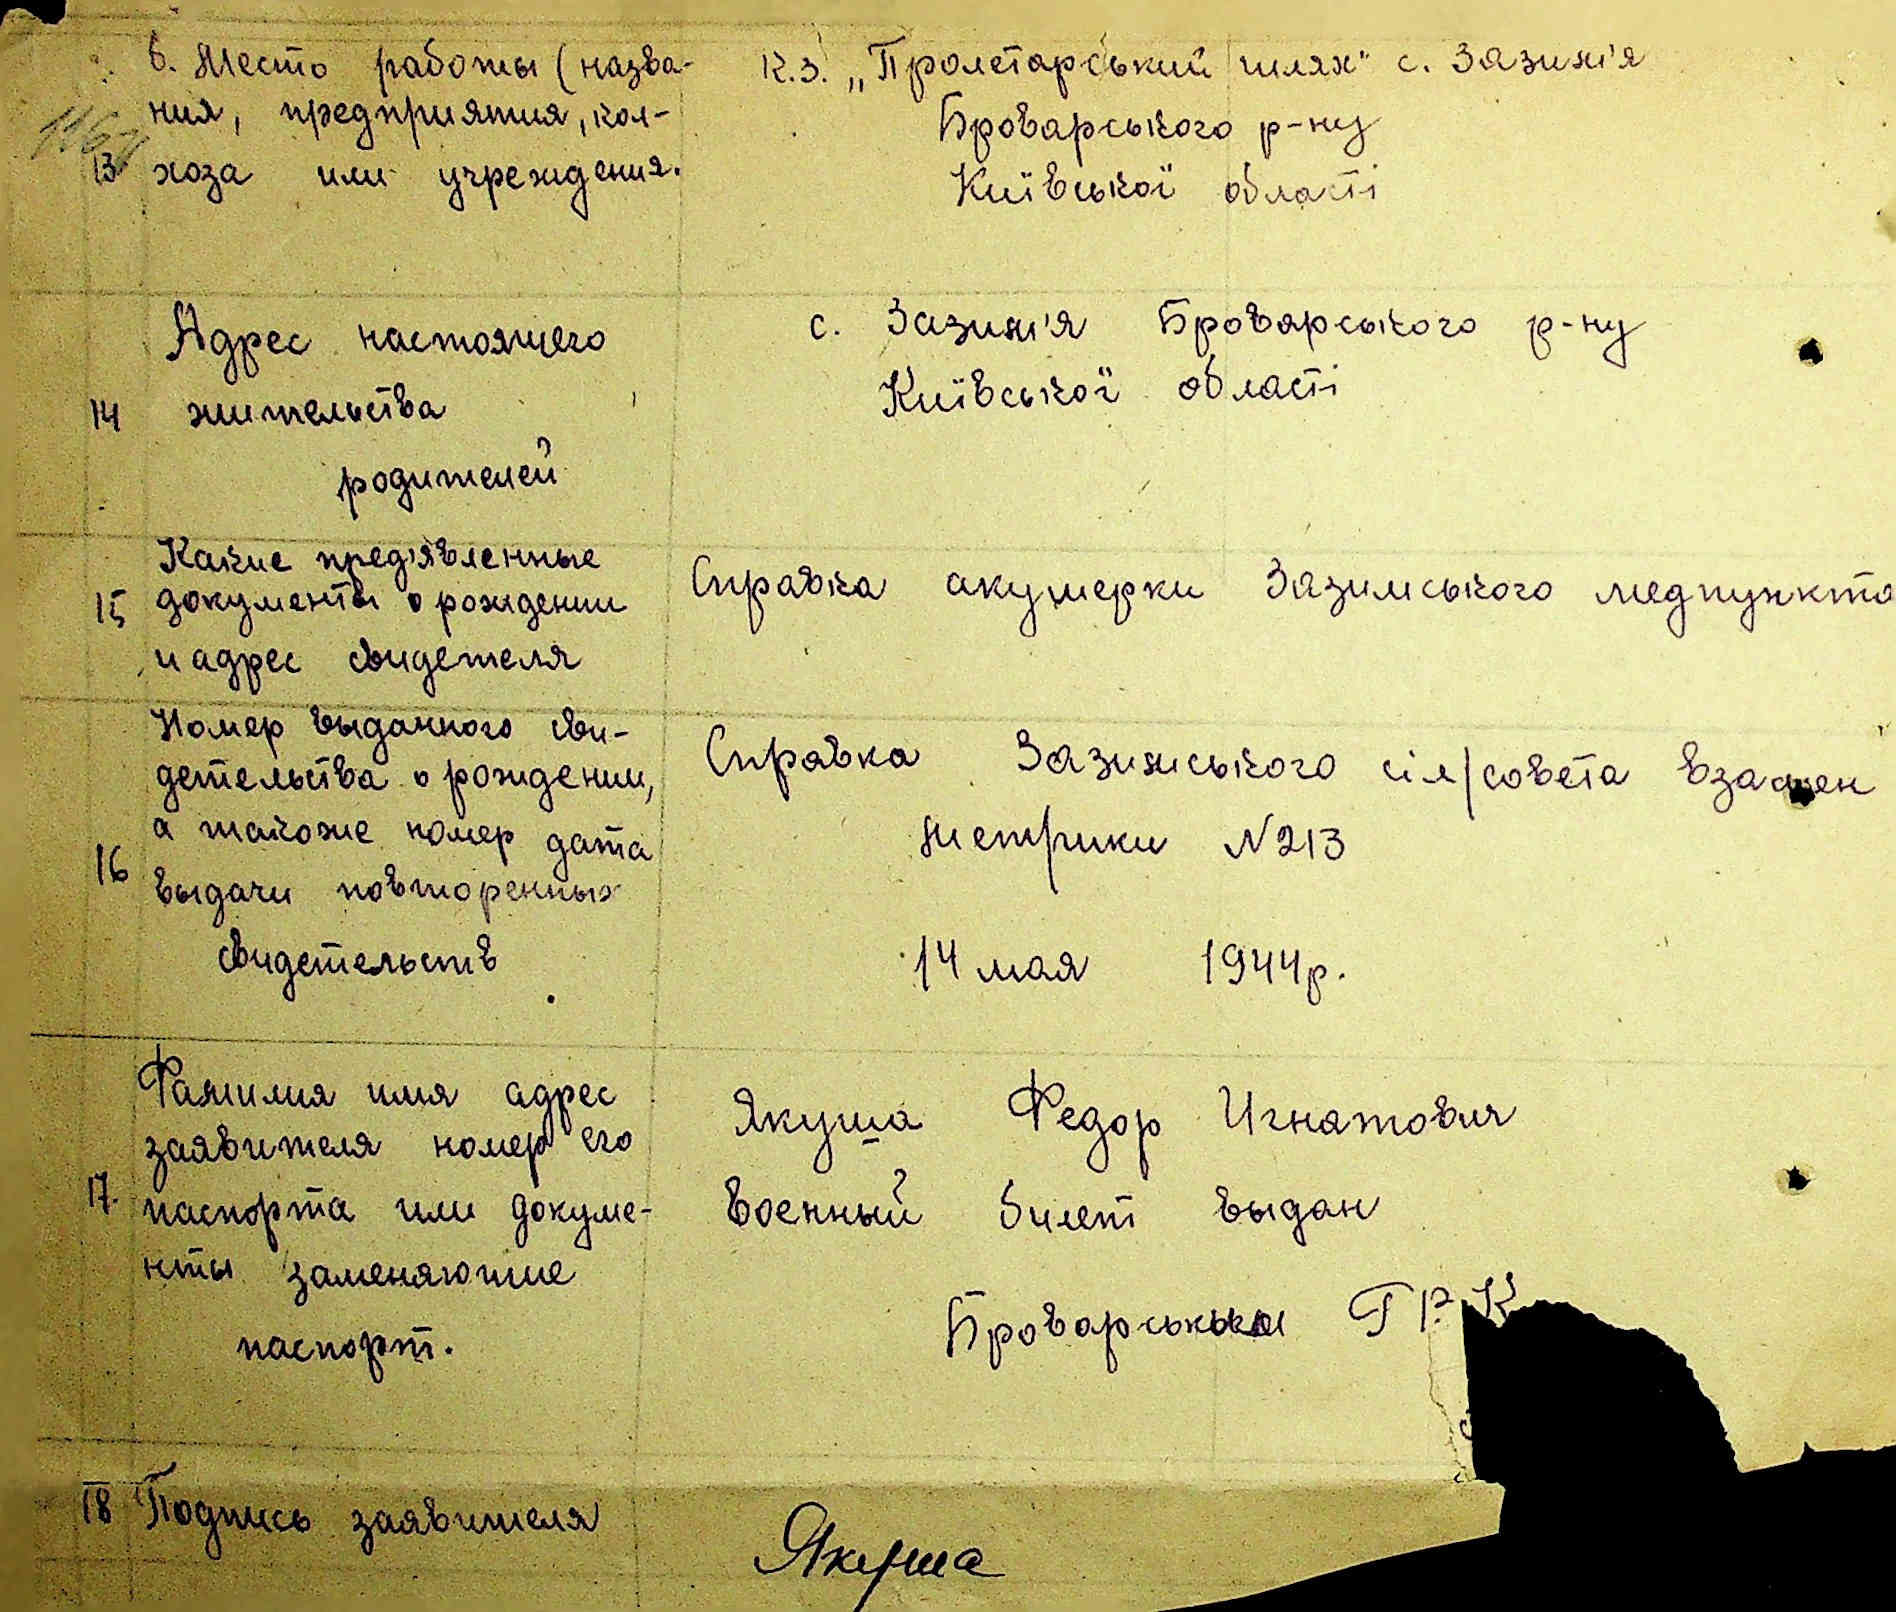 в. Место работы (назва-
ния, предприятия, кол-
13 хоза или учреждения.
К.З. „Пролетарський шлях" с. Зазим'я
Броварського р-ну
Київської області
Адрес настоящего
14 жительства
родителей
с. Зазим'я Броварського р-ну
Київської області
Какие пред'явленные
15 документы о рождении
и адрес свидетеля
Справка акушерки Зазимського медпункта
Номер выданного сви-
детельства о рождении,
а также номер дата
16 выдачи повторенных
свидетельств
Справка Зазимського сіл/совета взамен
метрики N213
14 мая 1944р.
Фамилия имя адрес
заявителя номер его
17. паспорта или докуме-
нты заменяющие
паспорт.
Якуша Федор Игнатович
Военный билет выдан
Броварським Г Р. К
18 Подпись заявителя
Якуша